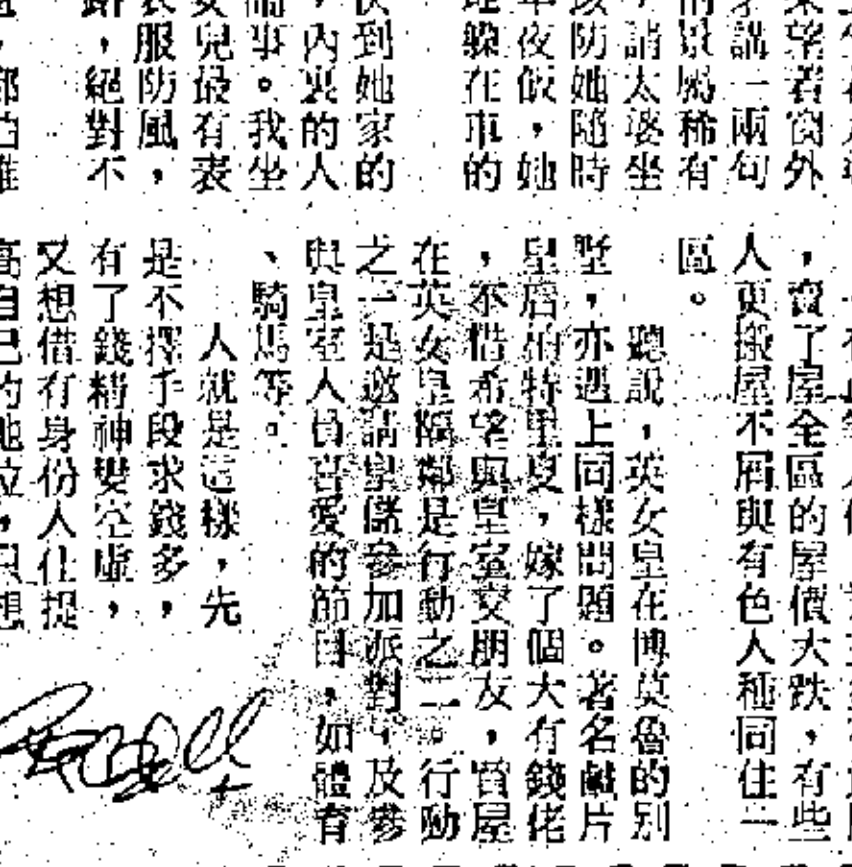 望着窗外
講一兩句
景屬稀有
，請太婆坐
該防她隨時
夜飯，她
地躲在車的
快到她家的
，內裏的人
鬧事。我坐
女兒最有表
衣服防風，
路，絕對不
，賣了屋全區的屋價大跌，有些
人更搬屋不屑與有色人種同住一
區。
聽說，英女皇在博莫魯的別
墅，亦遇上同樣問題。著名鹹片
皇后柏特里夏，嫁了個大有錢佬
，不惜希望與皇室交朋友，買屋
在英女皇隔鄰是行動之二。行動
之一是邀請皇儲參加派對，及參
與皇室人員喜愛的節目，如體育
、騎馬等。
人就是這樣，先
是不擇手段求錢多，
有了錢精神變空虛，
又想借有身份人仕提
高自己的地位，只想